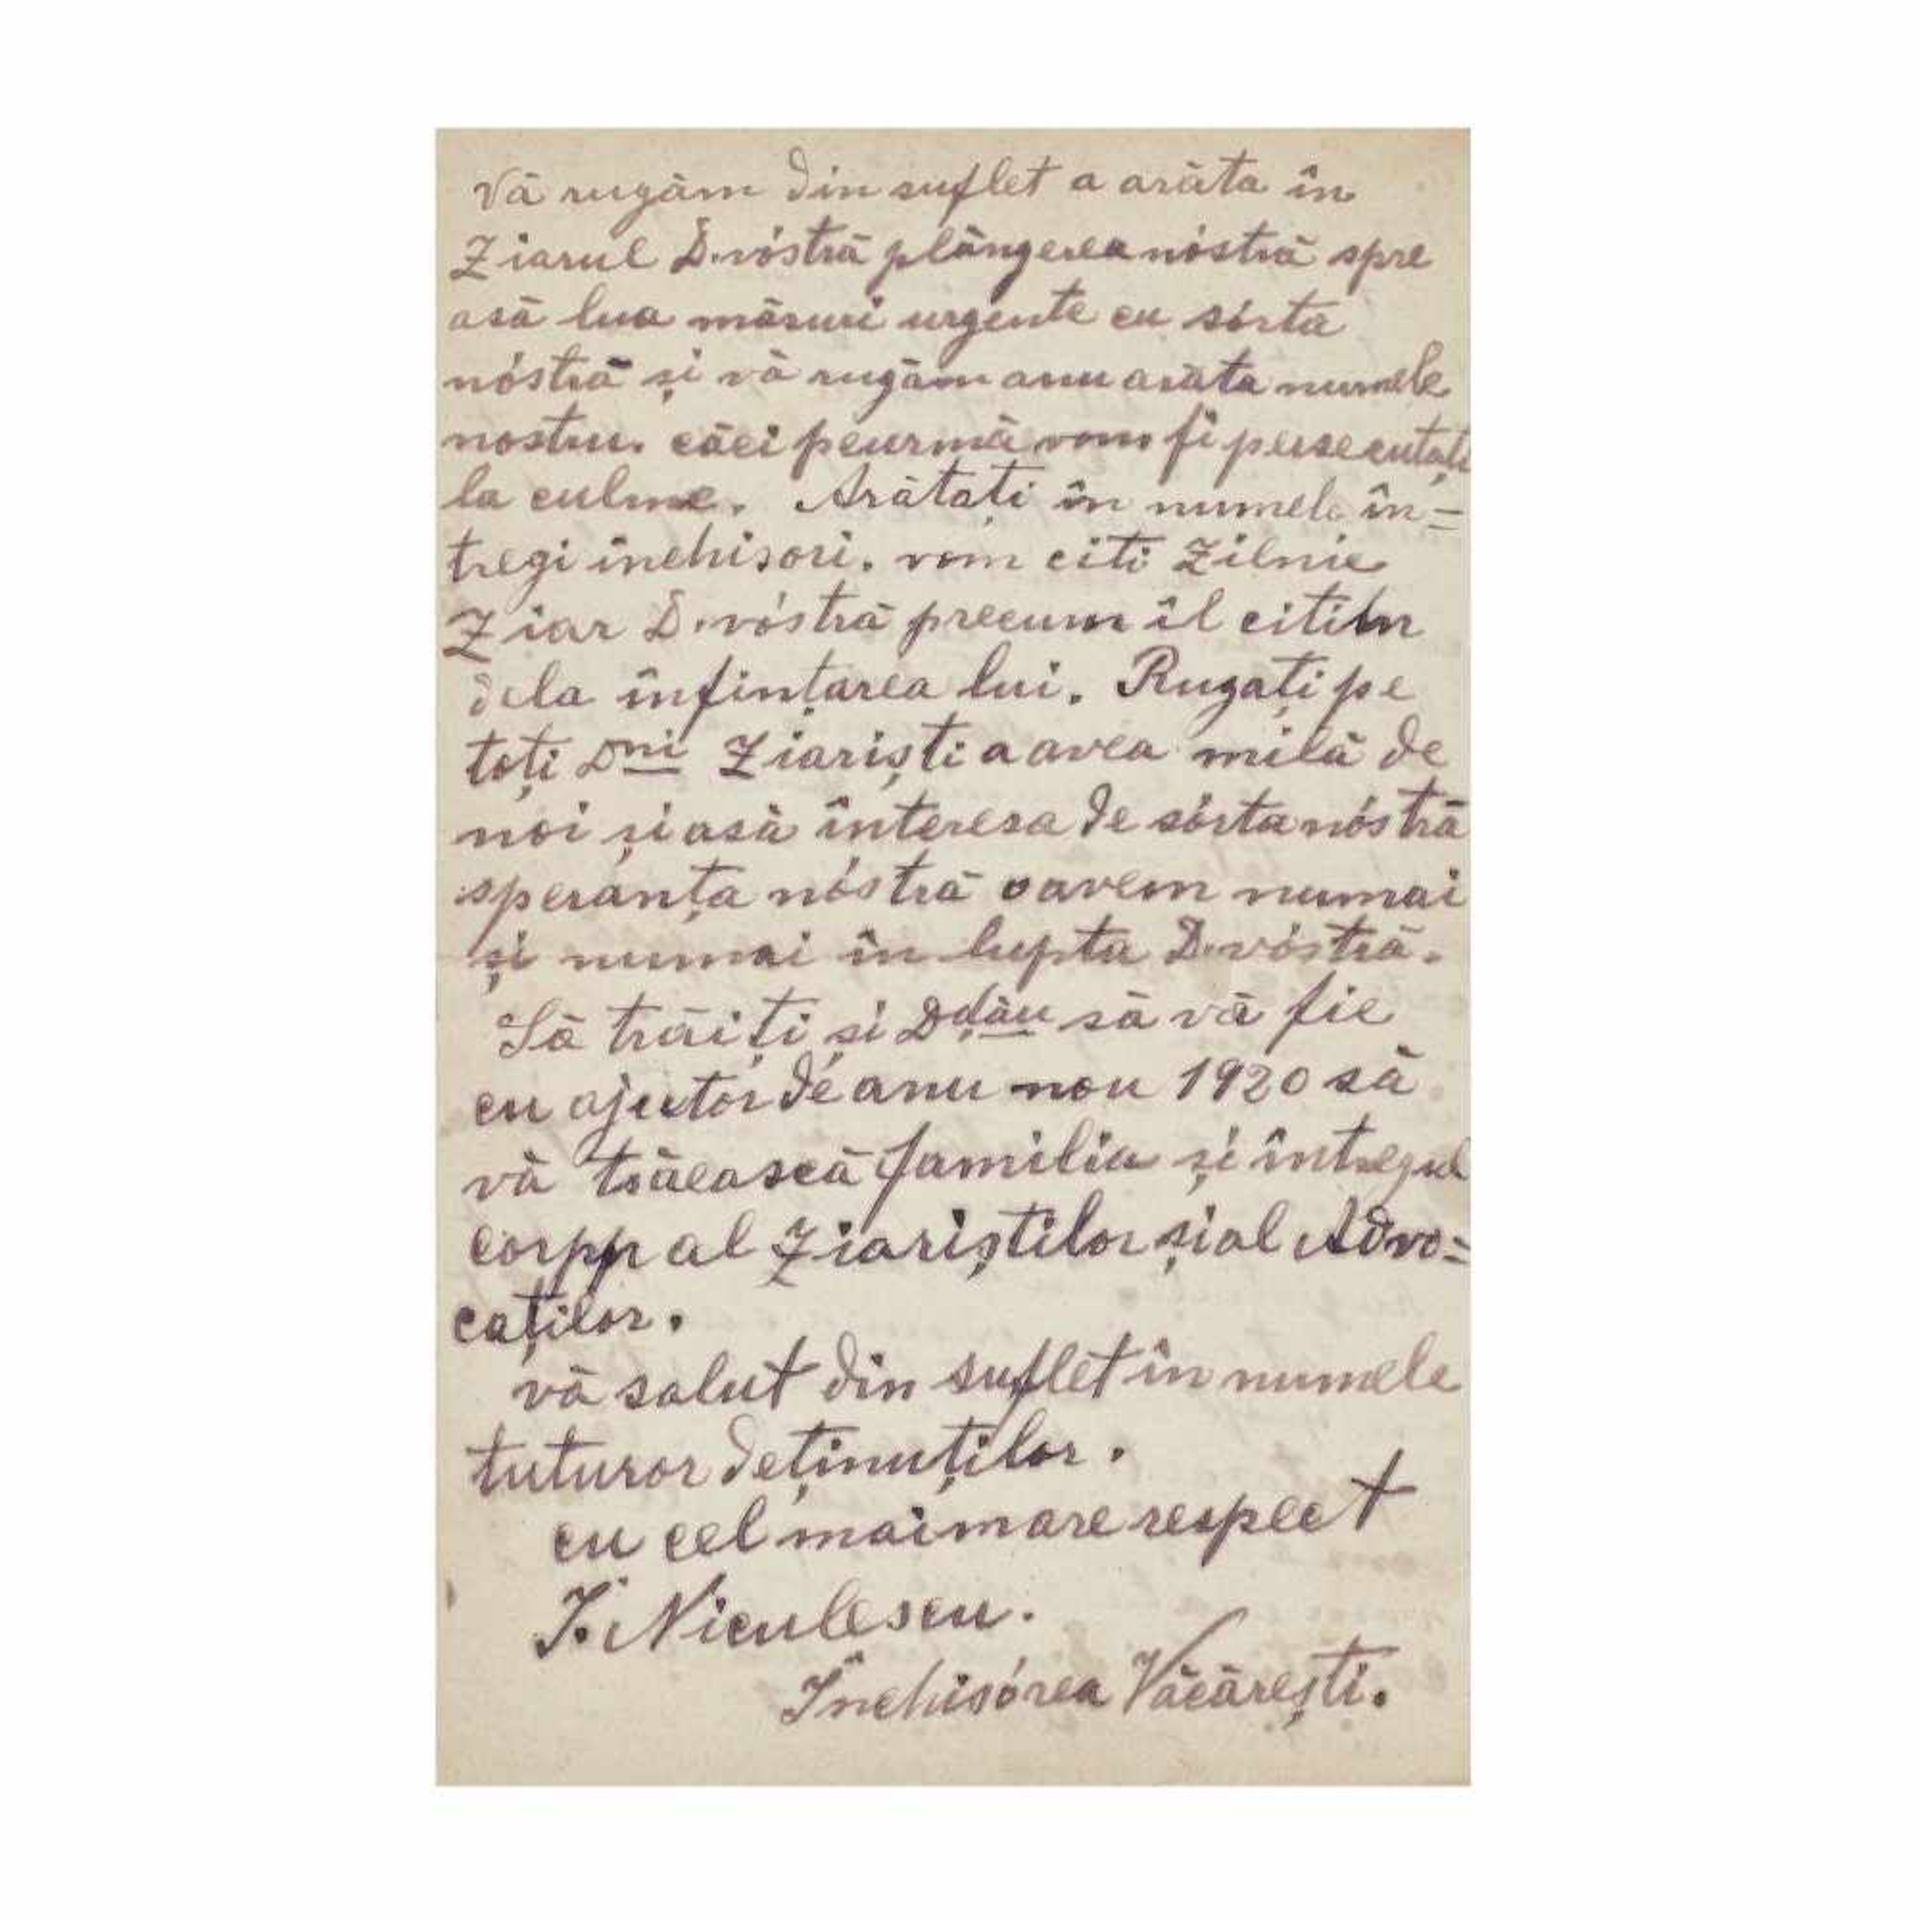 Vă rugăm din suflet a arăta în
Ziarul D.vóstră plângerea nóstră spre
asă lua măsuri urgente cu sórta
nóstră și vă rugăm anu arăta numele
nostru. căci peurmă vom fi persecutați
la culme. Arătați în numele în=
tregi inchisori. vom citi Zilnic
Ziar D.vóstră precum îl citim
dela înfințarea lui. Rugați pe
toți Dni Ziariști a avea milă de
noi și asă interesa de sórta nóstră
speranța nóstră o avem numai
și numai în lupta D.vóstră.
Să trăiți și Ddău să vă fie
cu ajutor de anu nou 1920 să
vă trăească familia și întregul
corpp al Ziariștilor și al Advo=
caților.
vă salut din suflet în numele
tuturor deținuților.
cu cel mai mare respect
I. Niculescu.
Închisórea Văcărești.